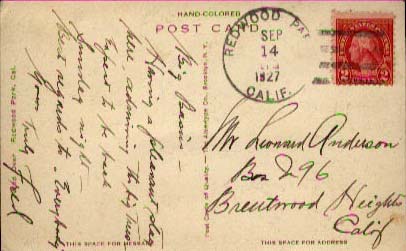 HAND-COLORED
POST CARD
REDWOOD PARK
SEP
14
1927
CALIF.
2
Big Basin —
Having a pleasant stay
here admiring the big trees
Expect to be back
Sunday night —
Best regards to Everybody
Yours truly
Redwood Park, Cal.
The Albertype Co., Brooklyn, N. Y.
Post Cards of Quality.
Mr Leonard Anderson
Box 296
Brentwood Heights
Calif
THIS SPACE FOR MESSAGE
THIS SPACE FOR ADDRESS